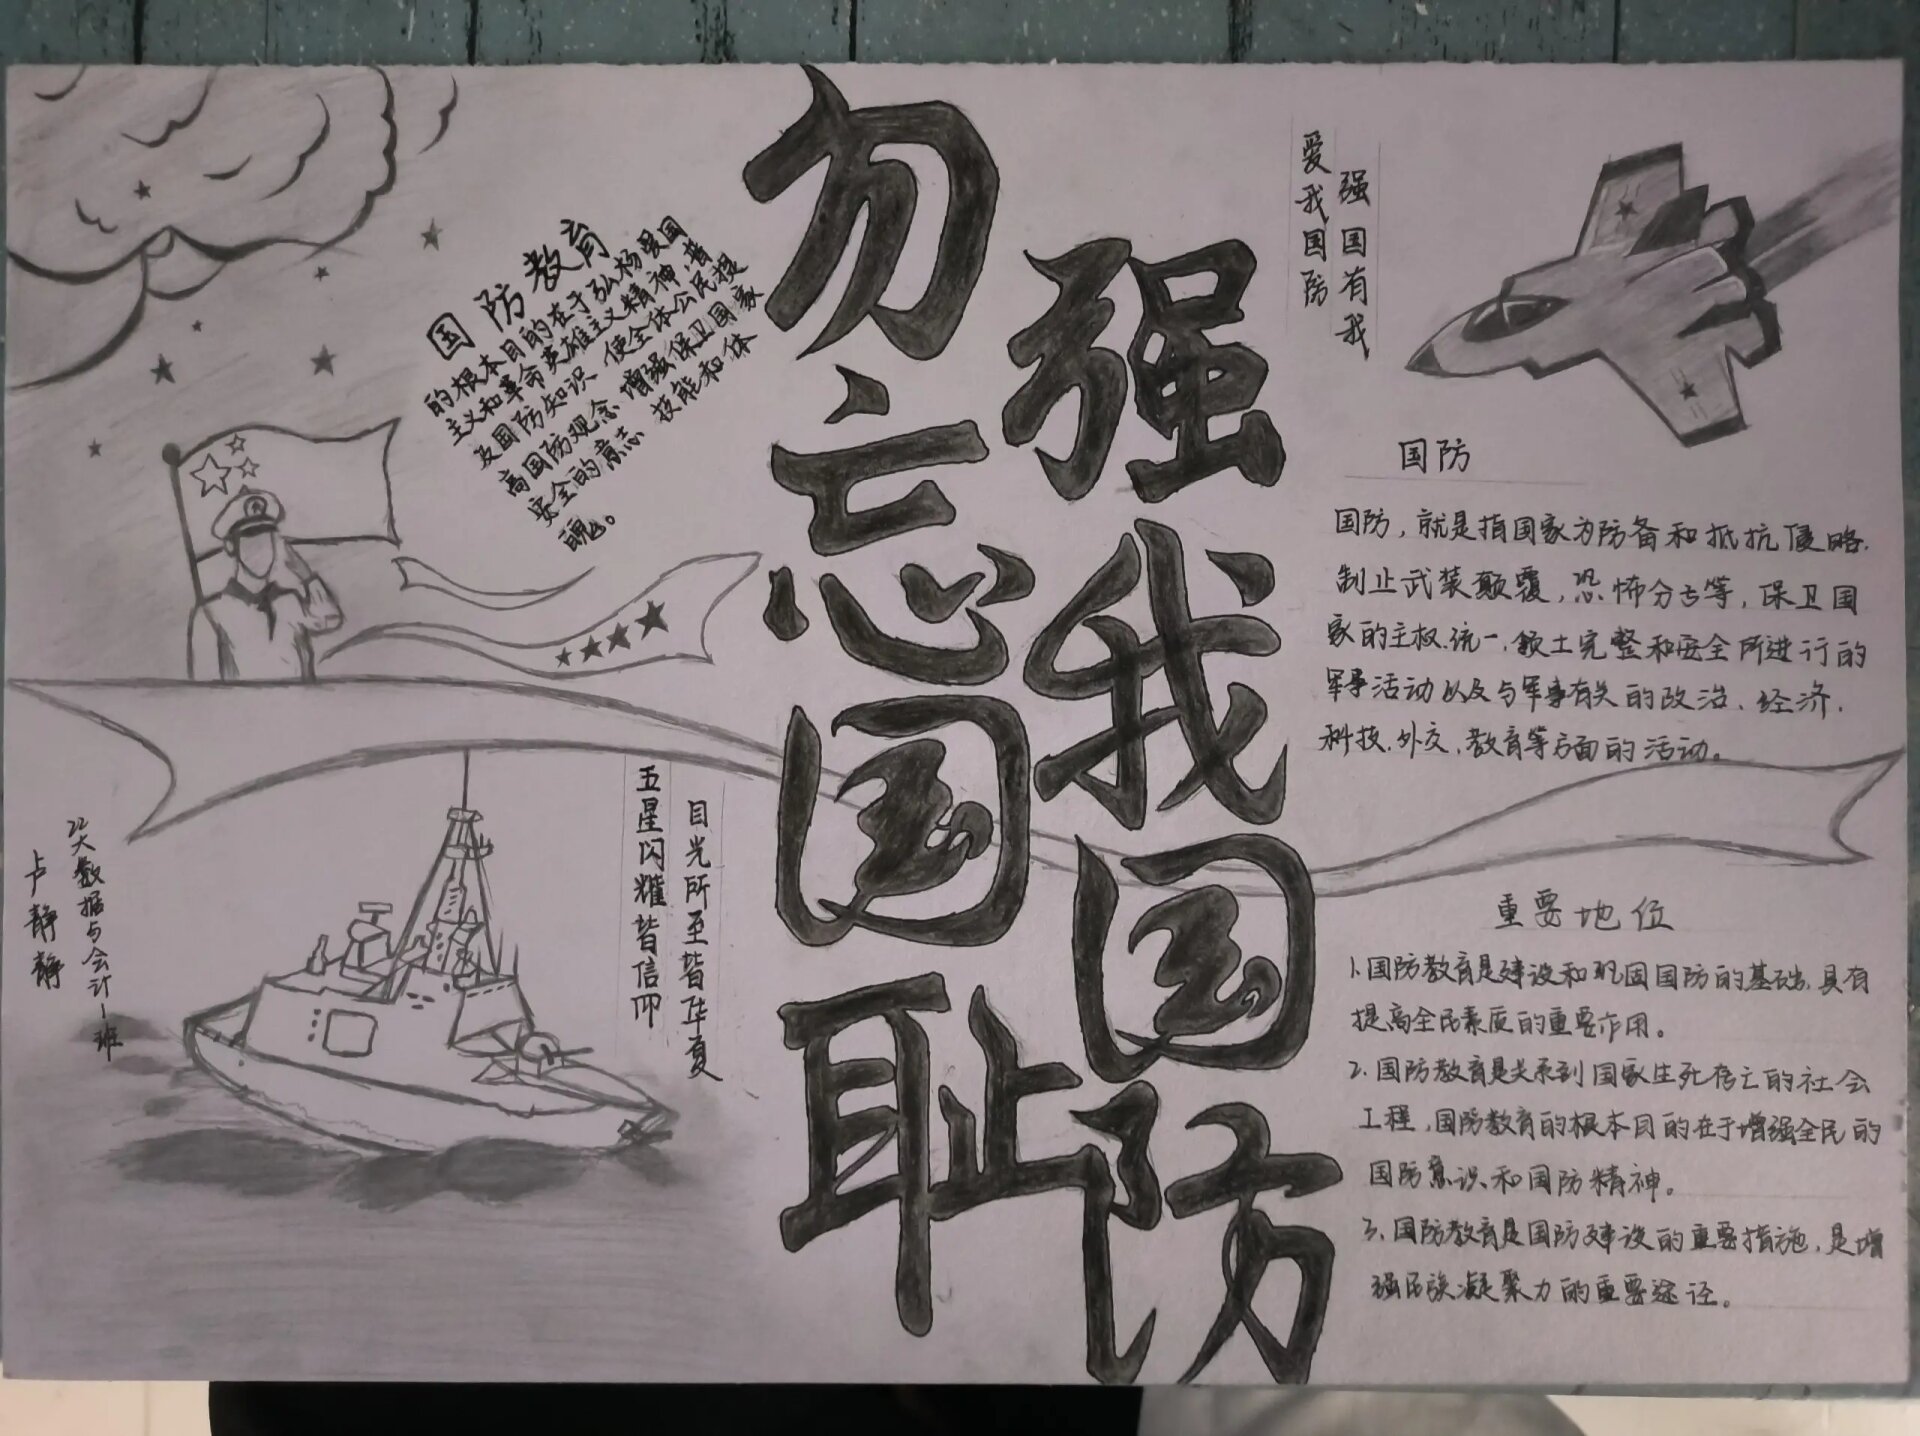 勿忘国耻
强我国防
国防教育
的根本目的在于弘杨爱国
主义和革命英雄主义精神 普
及国防知识 使全体公民提
高国防观念 增强保卫国家
安全的意志 技能和体
魄。
爱我国防
强国有我
国防
国防，就是指国家为防备和抵抗侵略、
制止武装颠覆，恐怖分古等，保卫国
家的主权、统一、领土完整和安全所进行的
军事活动以及与军事有关的政治、经济、
科技、外交、教育等方面的活动。
五星闪耀皆信仰
目光所至皆华夏
22大数据与会计1班
卢静静
重要地位
1、国防教育是建设和巩固国防的基础，具有
提高全民素质的重要作用。
2、国防教育是关系到国家生死存亡的社会
工程，国防教育的根本目的在于增强全民的
国防意识和国防精神。
3、国防教育是国防建设的重要措施，是增
强民族凝聚力的重要途径。